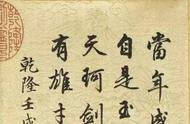 當年盛
自是玉
天珂劍
有雄才
乾隆壬戌